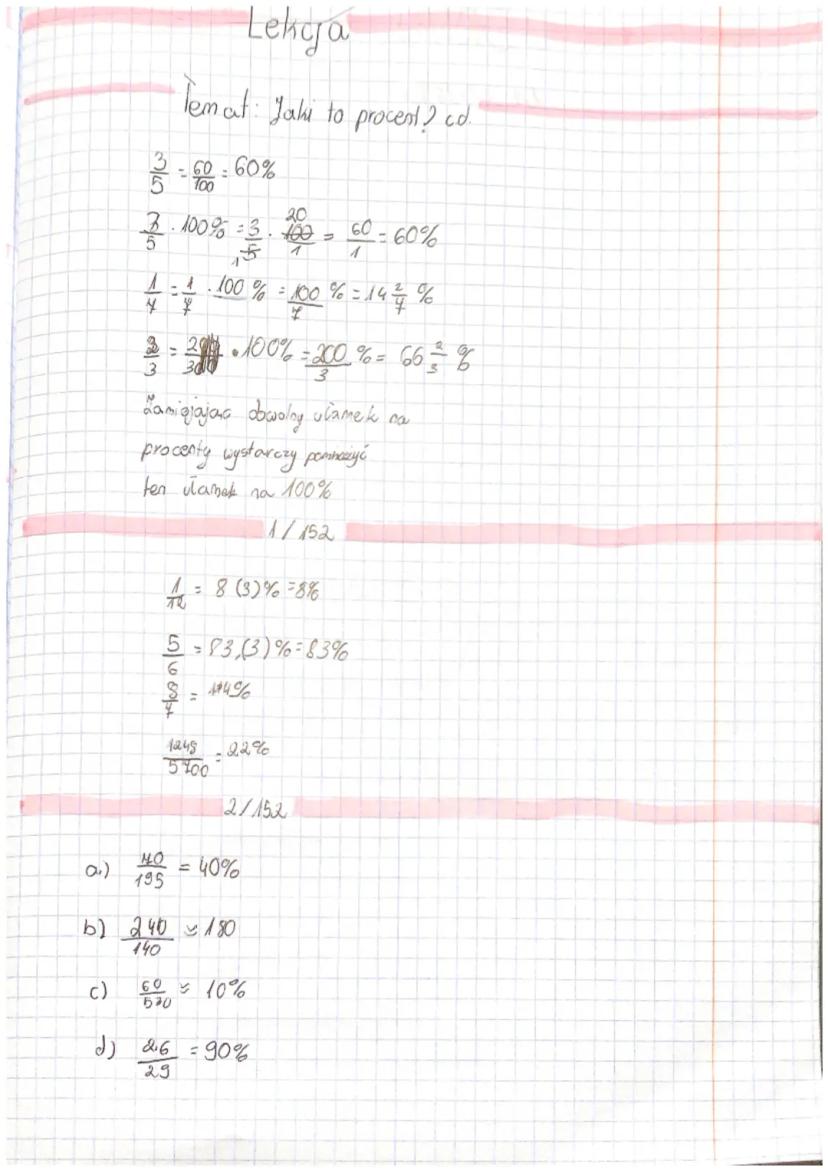 Lekcja
Temat: Jaki to procent? cd.
3/5 = 60/100 = 60%
3/5 · 100% = 3/5 1 · 100/1 20 = 60/1 = 60%
1/7 = 1/7 · 100% = 100/7 % = 14 2/7 %
2/3 = 2/3 · 100% = 200/3 % = 66 2/3 %
Zamiejając dowolny ułamek na
procenty wystarczy pomnożyć
ten ułamek na 100%
1/152
1/12 = 8 (3)% = 8%
5/6 = 83,(3)% = 83%
8/7 = 114%
5700 = 22%
2/152
a.) 195 = 40%
b) 240/140 ≈ 180
c) 60/ ≈ 10%
d) 26/29 = 90%